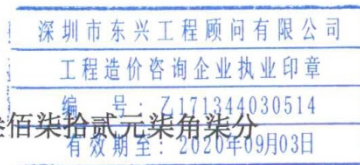 深圳市东兴工程顾问有限公司
工程造价咨询企业执业印章
编 号: Z171344030514
佰柒拾贰元柒角柒分
有效期至: 2020年09月03日